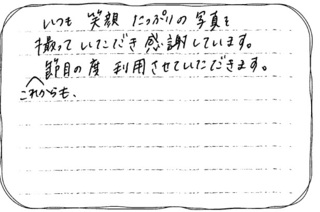 いつも 笑顔 たっぷりの 写真を
撮って いただき 感謝しています。
節目の度 利用させていただきます。
これからも、